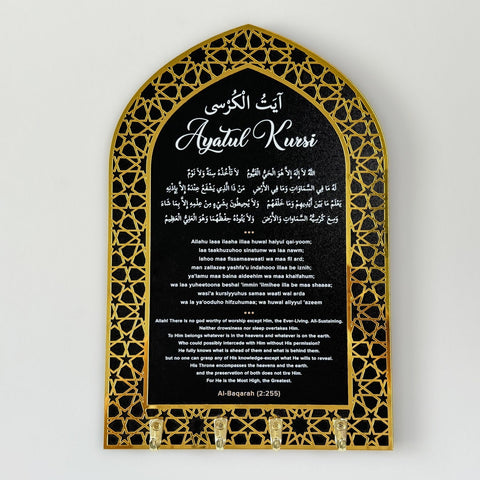 آيَتُ الْكُرْسِى
Ayatul Kursi
اَللّٰهُ لَا اِلٰهَ اِلَّا هُوَ الْحَيُّ الْقَيُّومُ لَا تَأْخُذُهُ سِنَةٌ وَلَا نَوْمٌ
لَهُ مَا فِي السَّمَاوَاتِ وَمَا فِي الْاَرْضِ مَنْ ذَا الَّذِي يَشْفَعُ عِنْدَهُ اِلَّا بِإِذْنِهِ
يَعْلَمُ مَا بَيْنَ اَيْدِيهِمْ وَمَا خَلْفَهُمْ وَلَا يُحِيطُونَ بِشَيْءٍ مِنْ عِلْمِهِ اِلَّا بِمَا شَاءَ
وَسِعَ كُرْسِيُّهُ السَّمَاوَاتِ وَالْاَرْضَ وَلَا يَئُودُهُ حِفْظُهُمَا وَهُوَ الْعَلِيُّ الْعَظِيمُ
Allahu laaa ilaaha illaa huwal haiyul qai-yoom;
laa taakhuzuhoo sinatunw wa nawm;
lahoo maa fissamaawaati wa maa fil ard;
man zallazee yashfa'u indahooo illaa be iznih;
ya'lamu maa baina aideehim wa maa khalfahum;
wa laa yuheetoona beshai 'immin 'ilmihee illa be maa shaaaa;
wasi'a kursiyyuhus samaa waati wal arda
wa la ya'ooduho hifzuhumaa; wa huwal aliyyul 'azeem
Allah! There is no god worthy of worship except Him, the Ever-Living, All-Sustaining.
Neither drowsiness nor sleep overtakes Him.
To Him belongs whatever is in the heavens and whatever is on the earth.
Who could possibly intercede with Him without His permission?
He fully knows what is ahead of them and what is behind them,
but no one can grasp any of His knowledge-except what He wills to reveal.
His Throne encompasses the heavens and the earth.
and the preservation of both does not tire Him.
For He is the Most High, the Greatest.
Al-Baqarah (2:255)